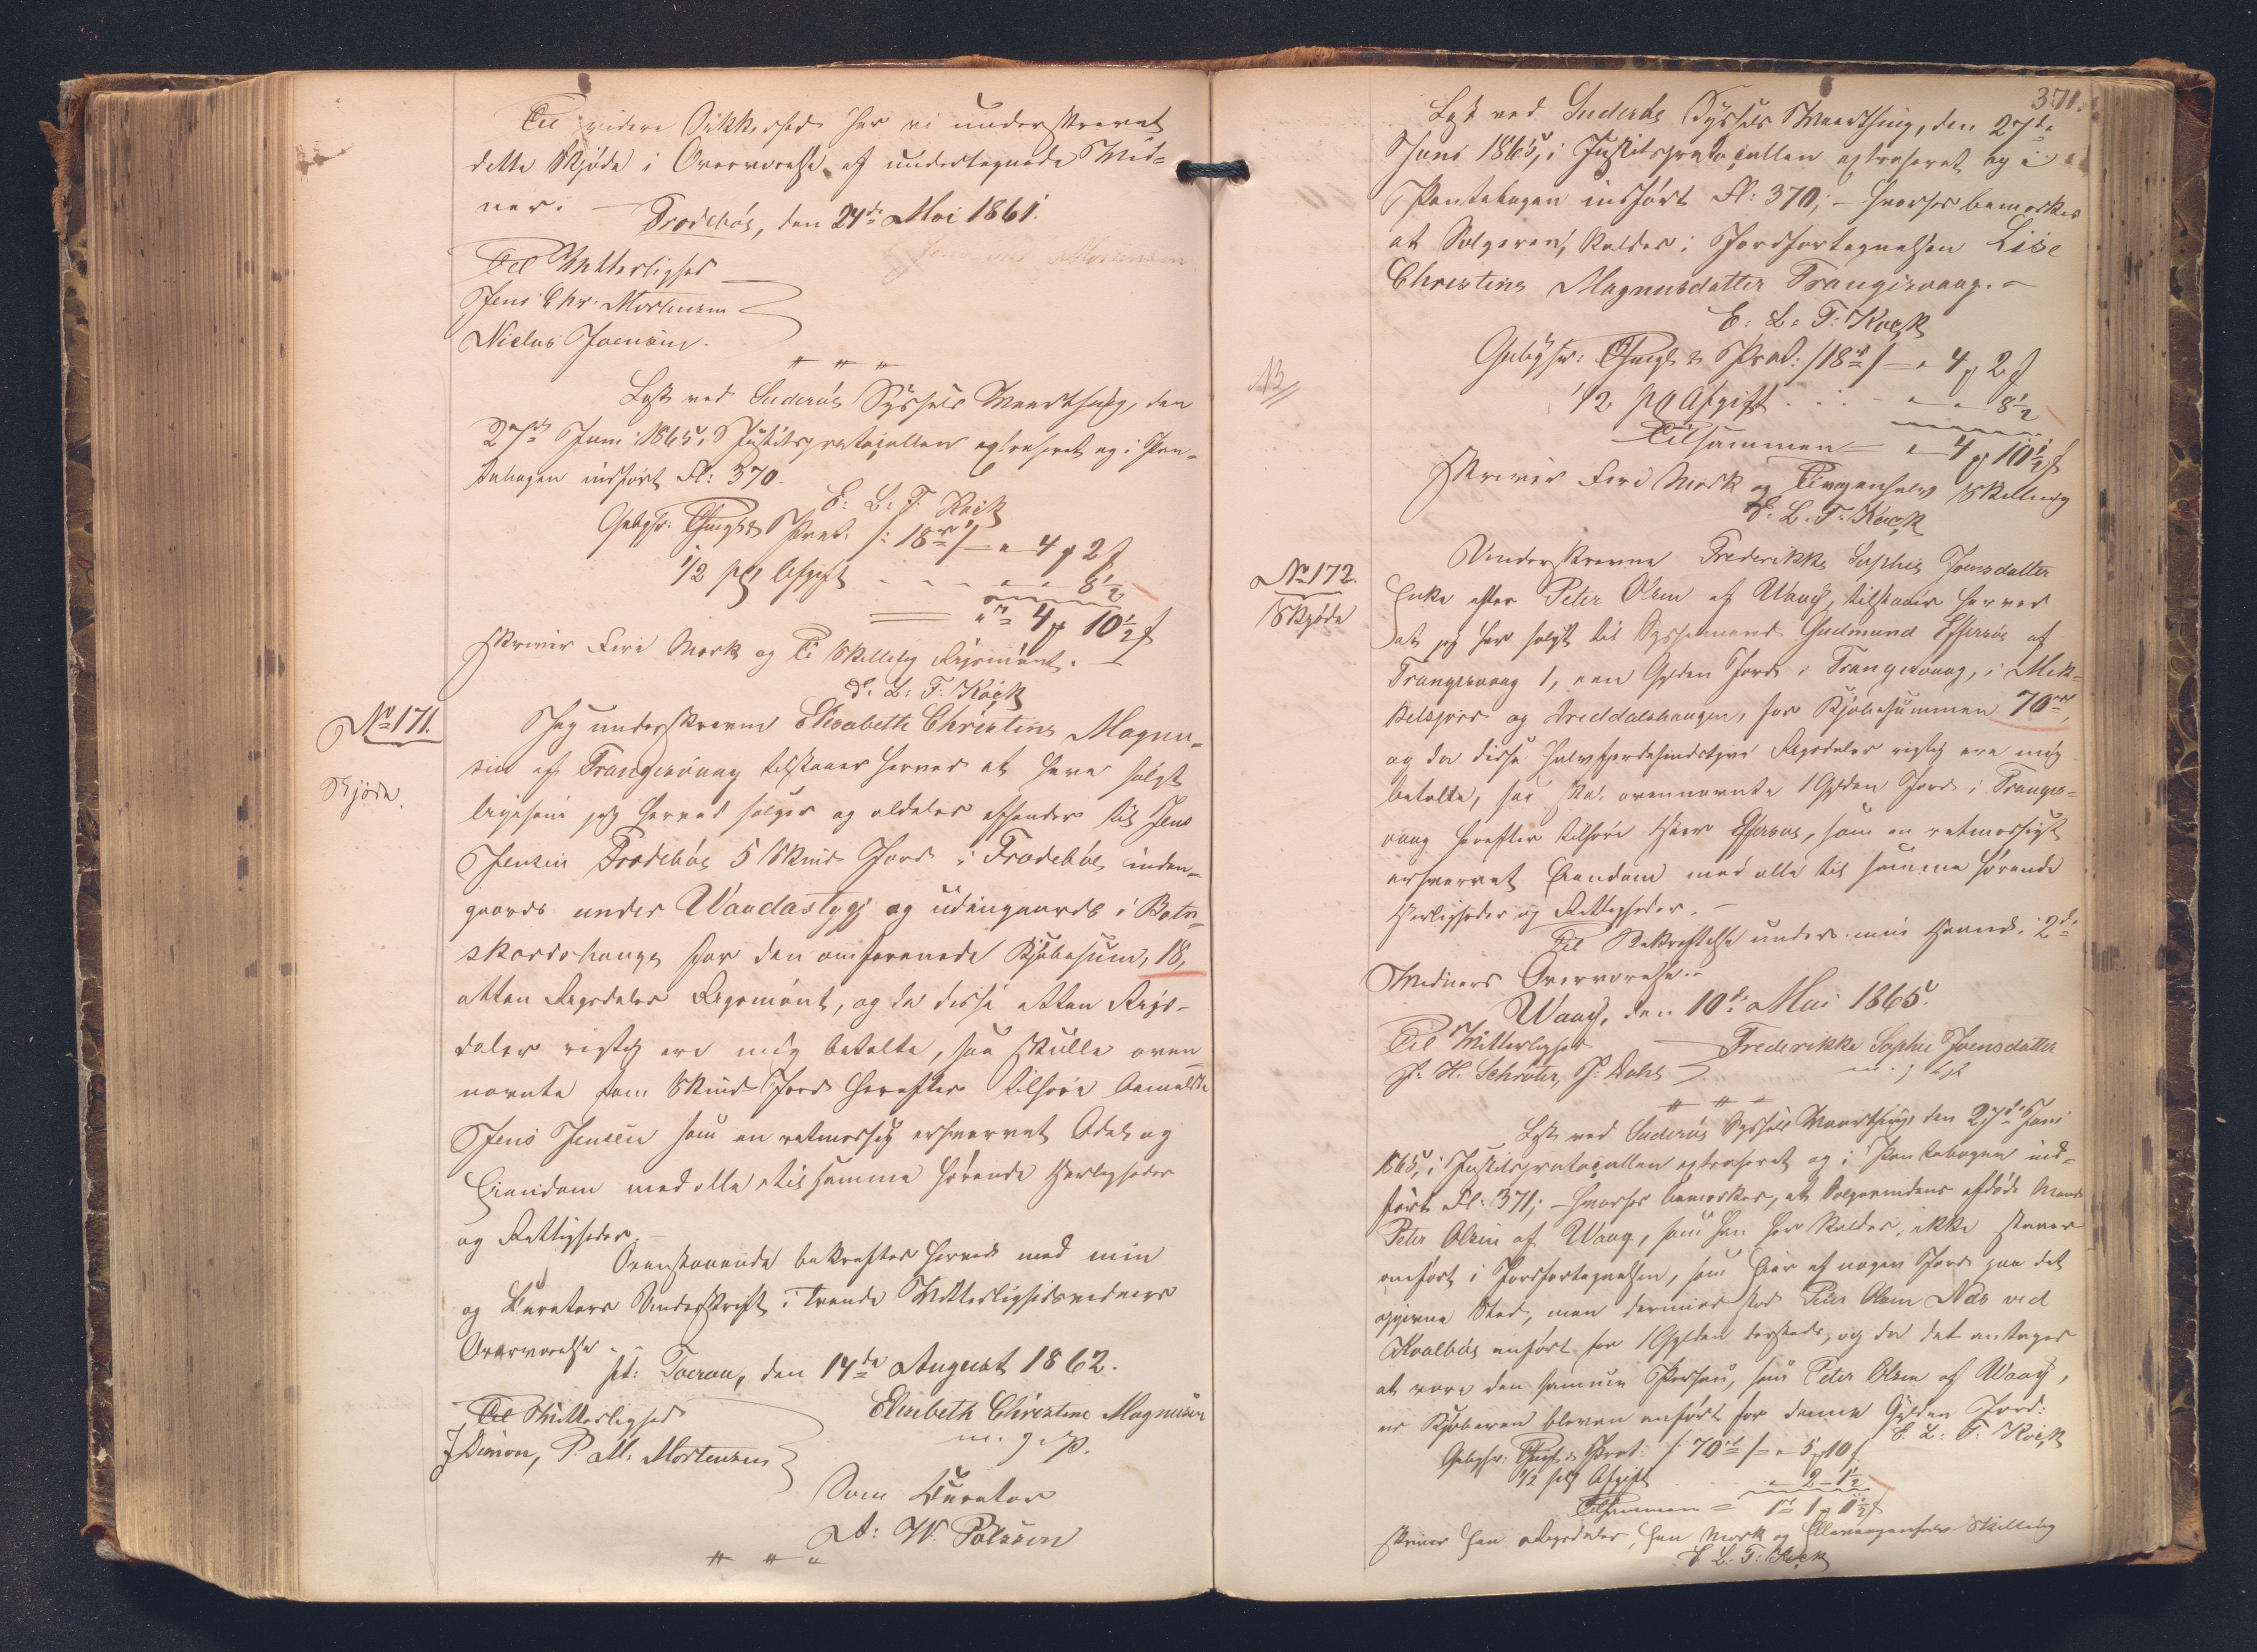 Til videre Sikkerhed har vi underskrevet
dette Skjøde i Overværelse af undertegnede Vid-
ner.
Frodebøe, den 24de Mai 1861.
Til Vitterlighed
Jens Chr. Mortensen
Niclas Joensen.
" " "
Læst ved Suderøe Syssels Vaarthing, den
27de Juni 1865, i Justitsprotocollen extraheret og i Pan-
tebogen indført Fol: 370.
E: L: T: Kock
Gebyhr: Thingl. & Prot. /: 18 rd / = " 4 ƥ 2 ß
1/2 pCt Afgift - - - " " 8½
= " rd 4 ƥ 10½ ß
skriver Fire Mark og Ti Skilling Rigsmønt. -
E. L: T: Kock
No 171.
Skjøde.
Jeg underskrevne Elisabeth Christine Magnu-
sen af Trangisvaag tilstaaer herved at have solgt
ligesom jeg herved sælger og aldeles afhænder til Jens
Jensen Frodebøe 5 Skind Jord i Frodebøe inden-
gaards under Waadastygj og udengaards i Botn-
skardshauge for den omforenede Kjøbesum, 18,
atten Rigsdaler Rigsmønt, og da disse atten Rigs-
daler rigtig ere mig betalte, saa skulle oven-
nævnte fem Skind Jord herefter tilhøre bemeldte
Jens Jensen som en retmæssig erhvervet Odel og
Eiendom med alle til samme hørende Herligheder
og Rettigheder.
Ovenstaaende bekræftes herved med min
og Curators Underskrift i tvende Vitterlighedsvidners
Overværelse. -
pt: Tveraa, den 14de August 1862.
Til Vitterlighed
J Dimon, P. M. Mortensen
Elisebeth Christine Magnusen
m. f. P.
Som Curator
D: W. Polsson
" " "
371.
Læst ved Suderøe Syssels Vaarthing, den 27de
Juni 1865, i Justitsprotocollen extraheret og i
Pantebogen indført Fol: 370; - hvorhos bemærkes
at Sælgeren kaldes i Jordfortegnelsen Lise
Christine Magnusdatter Trangisvaag. -
E: L: T: Kock
Gebyhr: Thingl. & Prot: / 18 rd / - " 4 ƥ 2 ß
1/2 pCt Afgift . . . - " " 8½
Tilsammen = " 4 ƥ 10½ ß
skriver Fire Mark og Tiogenhalv Skilling
E. L. T: Kock
No 172.
Skjøde
Underskrevne Frederikke Sophie Joensdatter
Enke efter Peter Olsen af Waag, tilstaaer herved
at jeg har solgt til Sysselmand Gudmund Effersøe af
Trangisvaag 1, een Gylden Jord i Trangisvaag, i Mik-
kelsjord og Dreddalshaugen, for Kjøbesummen 70 rd,
og da disse halvfjerdsindstyve Rigsdaler rigtig ere mig
betalte, saa skal ovennævnte 1 Gylden Jord i Trangis-
vaag herefter tilhøre Herr Effersøe, som en retmæssigt
erhvervet Eiendom med alle til samme hørende
Herligheder og Rettigheder. -
Til Bekræftelse under min Haand i 2de
Vidners Overværelse. -
Waag, den 10de Mai 1865.
Til Vitterlighed
P. H. Schrøter, J: Dahl
Frederikke Sophie Joensdatter
" " "
Læst ved Suderøe Syssels Vaarthing, den 27de Juni
1865, i Justitsprotocollen extraheret og i Pantebogen ind-
ført Fol: 371; - hvorhos bemærkes, at Sælgerindens afdøde Mand
Peter Olsen af Waag, som han her kaldes, ikke staaer
anført i Jordfortegnelsen, som Eier af nogen Jord paa det
opgivne Sted, men derimod stod Peter Olsen Næs ved
Kvalbøe anført for 1 Gylden dersteds, og da det antages
at være den samme Person, som Peter Olsen af Waag,
er Kjøberen bleven anført for denne Gylden Jord:
E: L: T: Kock
Gebyhr: Thingl. & Prot: /: 70 rd / = " 5 ƥ 10 ß
1/2 pCt Afgift " 2 - 1½
Tilsammen = 1 rd 1 ƥ 11½ ß
skriver Een Rigsdaler, Een Mark og Elleveogenhalv Skilling
E. L. T: Kock